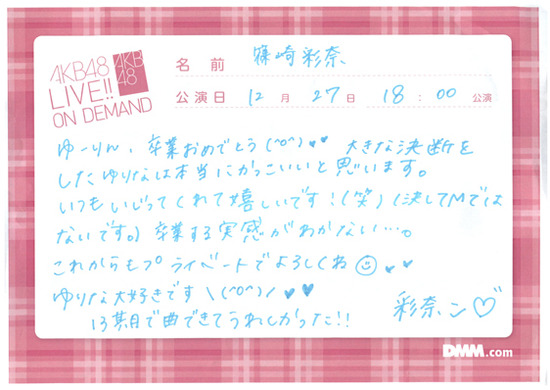 AKB48
LIVE!!
ON DEMAND
AKB
48
名前 篠崎彩奈
公演日 12月27日 18:00公演
ゆーりん、卒業おめでとう(^o^)♥♥ 大きな決断を
したゆりなは本当にかっこいいと思います。
いつもいじってくれて嬉しいです!(笑)(決してMでは
ないです。)卒業する実感がわかない…。
これからもプライベートでよろしくね☺♥♥
ゆりな大好きです\(^o^)/♥♥
13期で曲できてうれしかった!! 彩奈ン♡
DMM.com